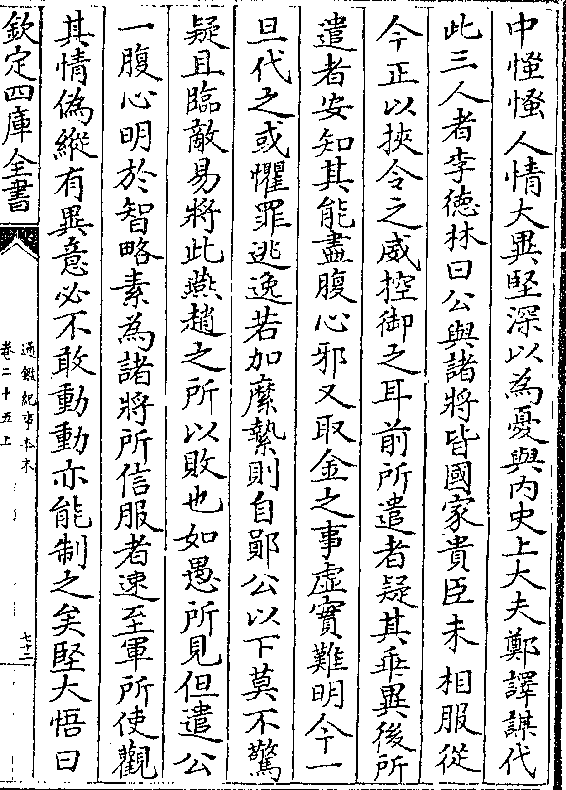 中慅慅人情大異堅深以為憂與内史上大夫鄭譯謀代
此三人者李徳林曰公與諸將皆國家貴臣未相服從
今正以挾令之威控御之耳前所遣者疑其乖異後所
遣者安知其能盡腹心邪又取金之事虛實難明今一
旦代之或懼罪逃逸若加縻縶則自鄖公以下莫不驚
疑且臨敵易將此燕趙之所以敗也如愚所見但遣公
一腹心明於智略素為諸將所信服者速至軍所使觀
其情偽縱有異意必不敢動動亦能制之矣堅大悟曰
欽定四庫全書
通鑑紀事本末
卷二十五上
七十二